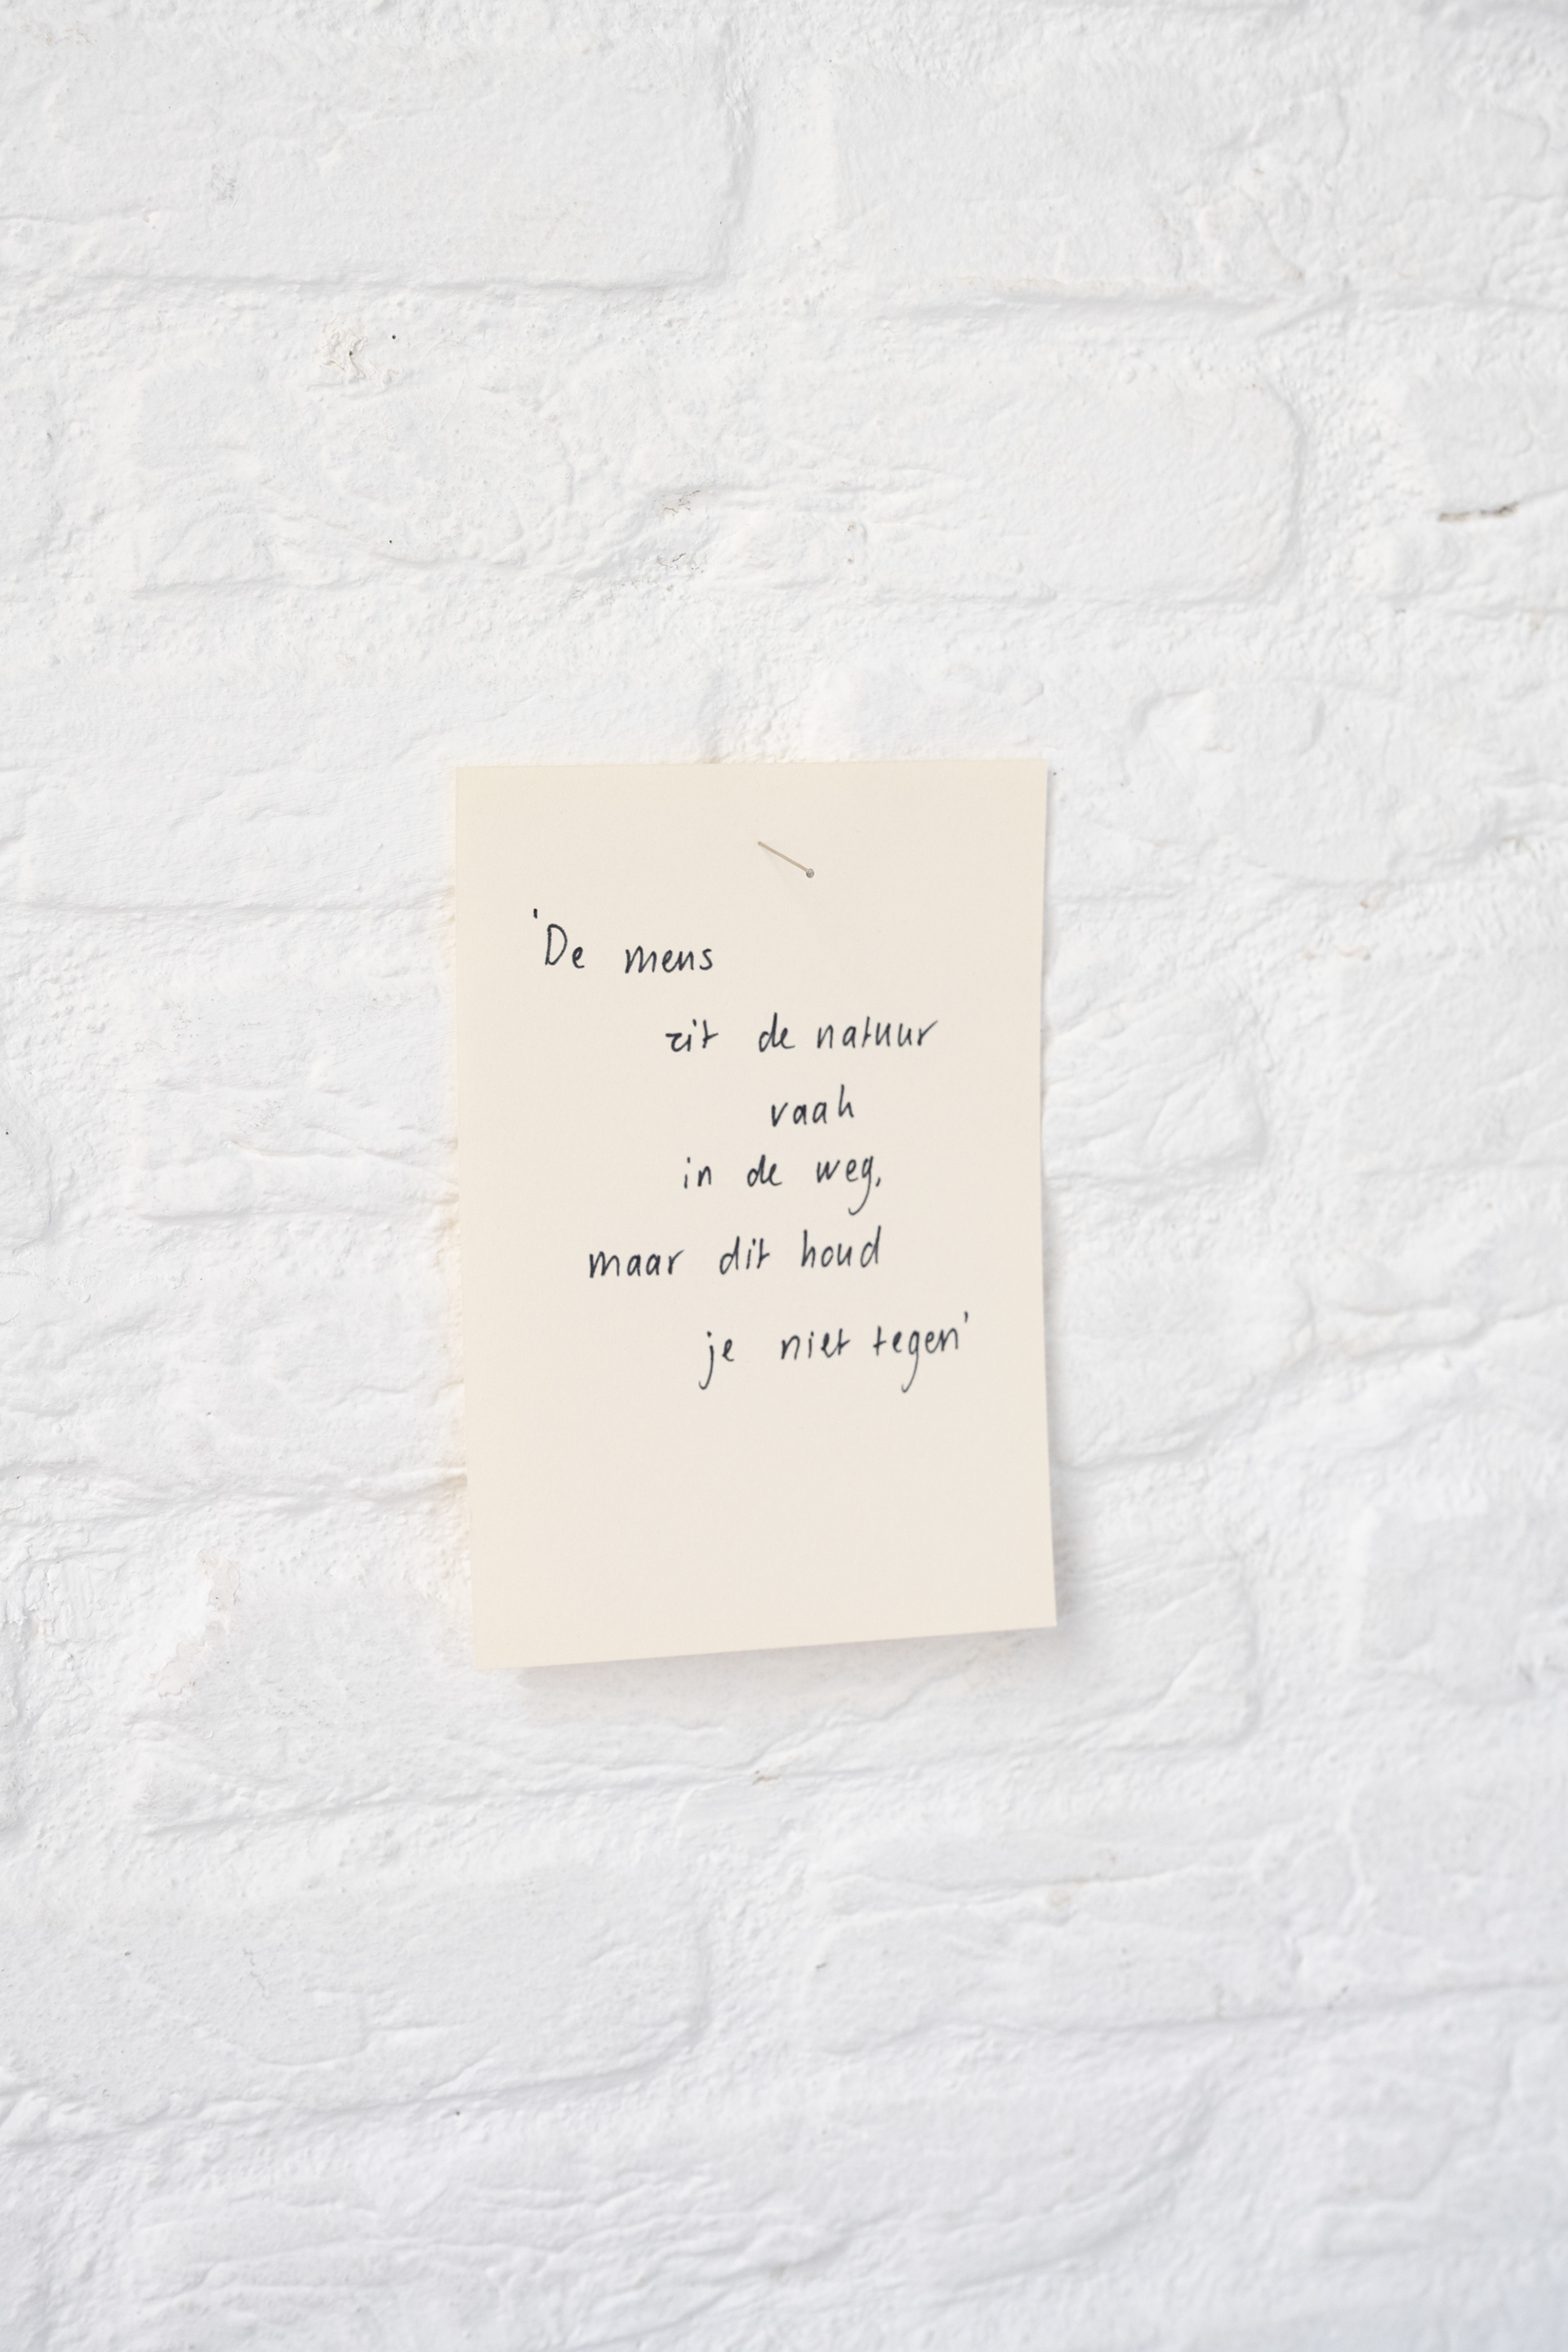 'De mens
zit de natuur
vaak
in de weg,
maar dit houd
je niet tegen'